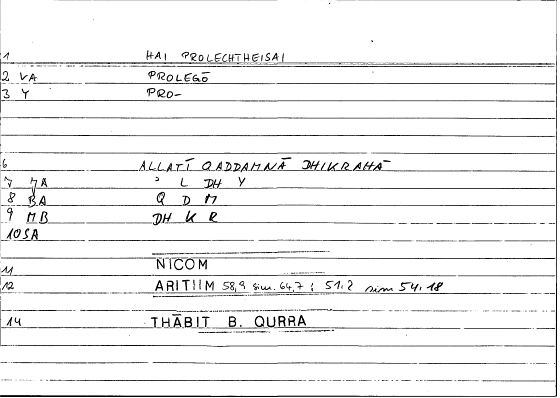 1 HAI PROLECHTHEISAI
2 VA PROLEGŌ
3 Y PRO-
6 ALLATĪ QADDAMNĀ DHIKRAHĀ
7 MA ʾ L DH Y
8 BA Q D M
9 MB DH K R
10 SA
11 NICOM
12 ARITIIM 58,9 sim. 64,7 ; 51,2 sim 54,18
14 THĀBIT B. QURRA